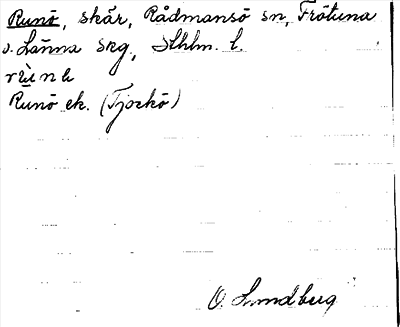 Runö, skär, Rådmansö sn, Frötuna
o. Länna skg, Sthlm. l.
rǜnɵ
Runö ek. (Tjockö)
O. Lundberg